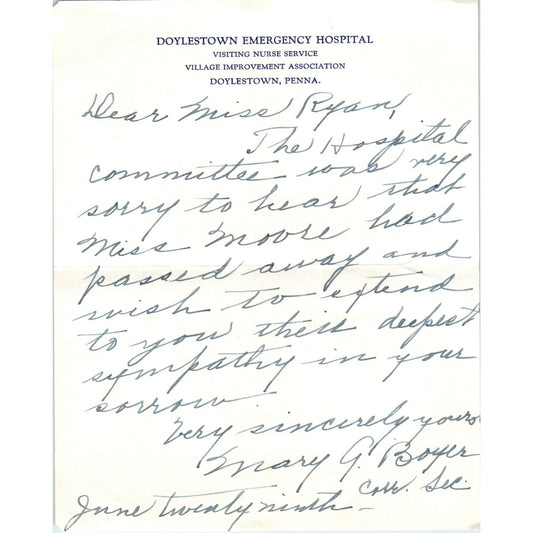 DOYLESTOWN EMERGENCY HOSPITAL
VISITING NURSE SERVICE
VILLAGE IMPROVEMENT ASSOCIATION
DOYLESTOWN, PENNA.
Dear Miss Ryan,
The Hospital
committee was very
sorry to hear that
Miss Moore had
passed away and
wish to extend
to you their deepest
sympathy in your
sorrow.
Very sincerely yours
Mary G. Boyer
Corr. Sec.
June twenty ninth –